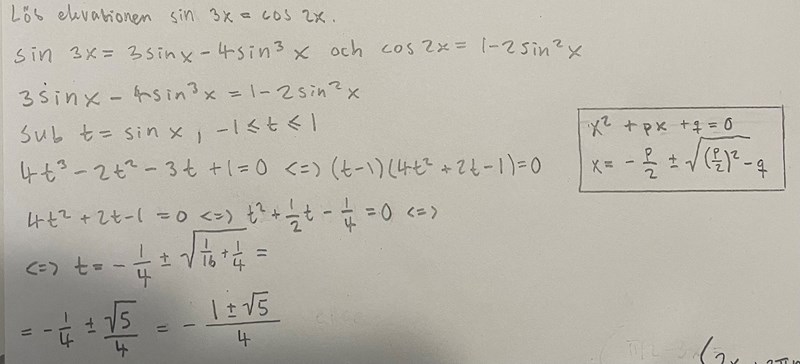 Lös ekvationen sin 3x = cos 2x.
sin 3x = 3sinx - 4sin³ x och cos 2x = 1-2sin²x
3sinx - 4sin³x = 1-2sin²x
Sub t = sin x, -1 ≤ t ≤ 1
4t³ - 2t² - 3t + 1 = 0 <=> (t-1)(4t² + 2t - 1) = 0
4t² + 2t - 1 = 0 <=> t² + 1/2 t - 1/4 = 0 <=>
<=> t = - 1/4 ± √(1/16 + 1/4) =
= - 1/4 ± √5/4 = - (1 ± √5)/4
x² + px + q = 0
x = - p/2 ± √((p/2)² - q)